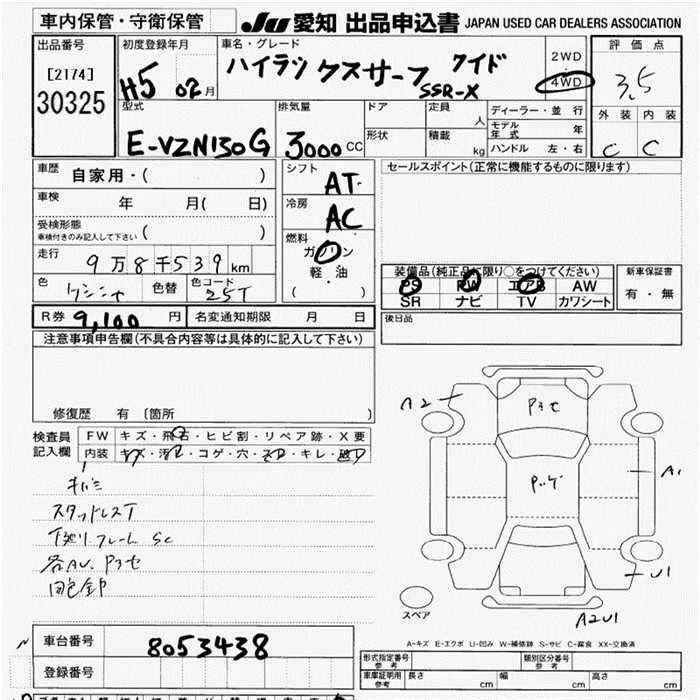 車内保管・守衛保管
JU 愛知 出品申込書 JAPAN USED CAR DEALERS ASSOCIATION
出品番号
[2174]
30325
初度登録年月
H5 02月
車名・グレード
ハイラックスサーフ ワイド
SSR-X
2WD
4WD
評価点
3.5
外装 内装
C C
型式
E-VZN130G
排気量
3000CC
ドア
形状
定員
人
積載
kg
ディーラー・並行
モデル年式 年
ハンドル 左・右
車歴
自家用・( )
車検
年 月( 日)
受検形態
車検付きのみ記入して下さい ( )
走行
9万8千539km
色
色替
色コード
25T
シフト
AT
冷房
AC
燃料
ガソリン
軽・油
( ・ )
セールスポイント(正常に機能するものに限ります)
装備品(純正品に限り○をつけてください)
PS PW エアB AW
SR ナビ TV カワシート
新車保証書
有・無
後日品
R券 9,100円
名変通知期限 月 日
注意事項申告欄(不具合内容等は具体的に記入して下さい)
修復歴 有 〔箇所 〕
検査員記入欄
FW キズ・飛石・ヒビ割・リペア跡・X要
内装 キズ・汚レ・コゲ・穴・スレ・キレ・破レ
スタッドレスT
下廻リフレーム Sc
各AU. Pヨセ
A2
Pヨセ
A1
U1
A2U1
スペア
A-キズ E-エクボ U-凹み W-補修跡 S-サビ C-腐食 XX-交換済
車台番号
8053438
登録番号
形式指定番号
参考
類別区分番号
参考
車庫証明用
参考
長さ cm
幅 cm
高さ cm